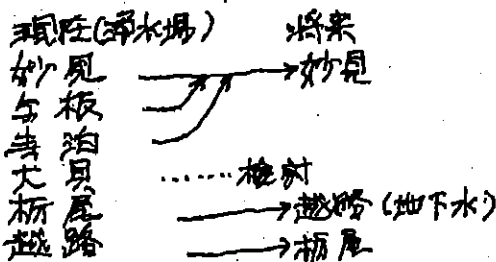 現在(浄水場) 将来
妙見 → 妙見
与板
寺泊
大貝 …… 検討
栃尾 → 越路(地下水)
越路 → 栃尾